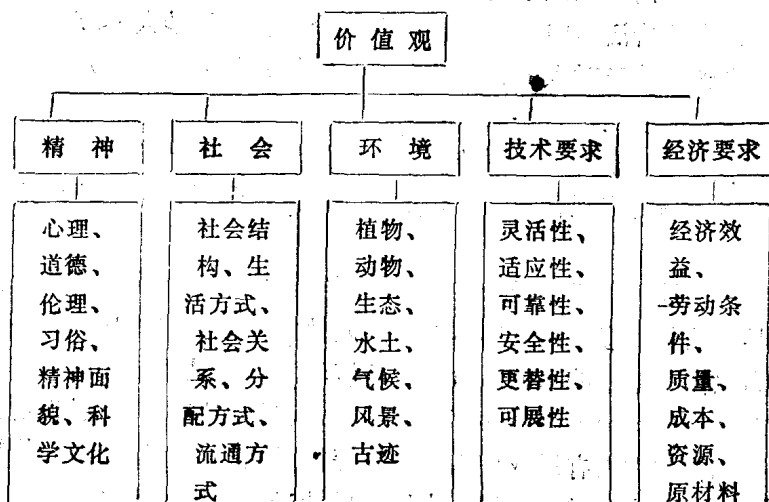 价值观
精神
社会
环境
技术要求
经济要求
心理、
道德、
伦理、
习俗、
精神面
貌、科
学文化
社会结
构、生
活方式、
社会关
系、分
配方式、
流通方
式
植物、
动物、
生态、
水土、
气候、
风景、
古迹
灵活性、
适应性、
可靠性、
安全性、
更替性、
可展性
经济效
益、
劳动条
件、
质量、
成本、
资源、
原材料